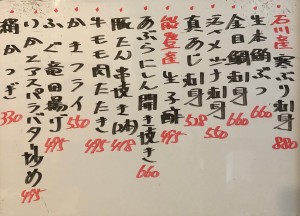 石川産 寒ぶり刺身 880
生本鮪ぶつ 660
金目鯛刺身 660
活〆メ出刺身 550
真あじ刺身 528
能登産 生子酢 495
あぶらにしん開き焼き 660
豚たん串焼き(1本) 418
牛モモ肉たたき 495
かきフライ 550
ふぐ竜田揚げ 495
いかとアスパラバター炒め 495
鍋かつぎ 330